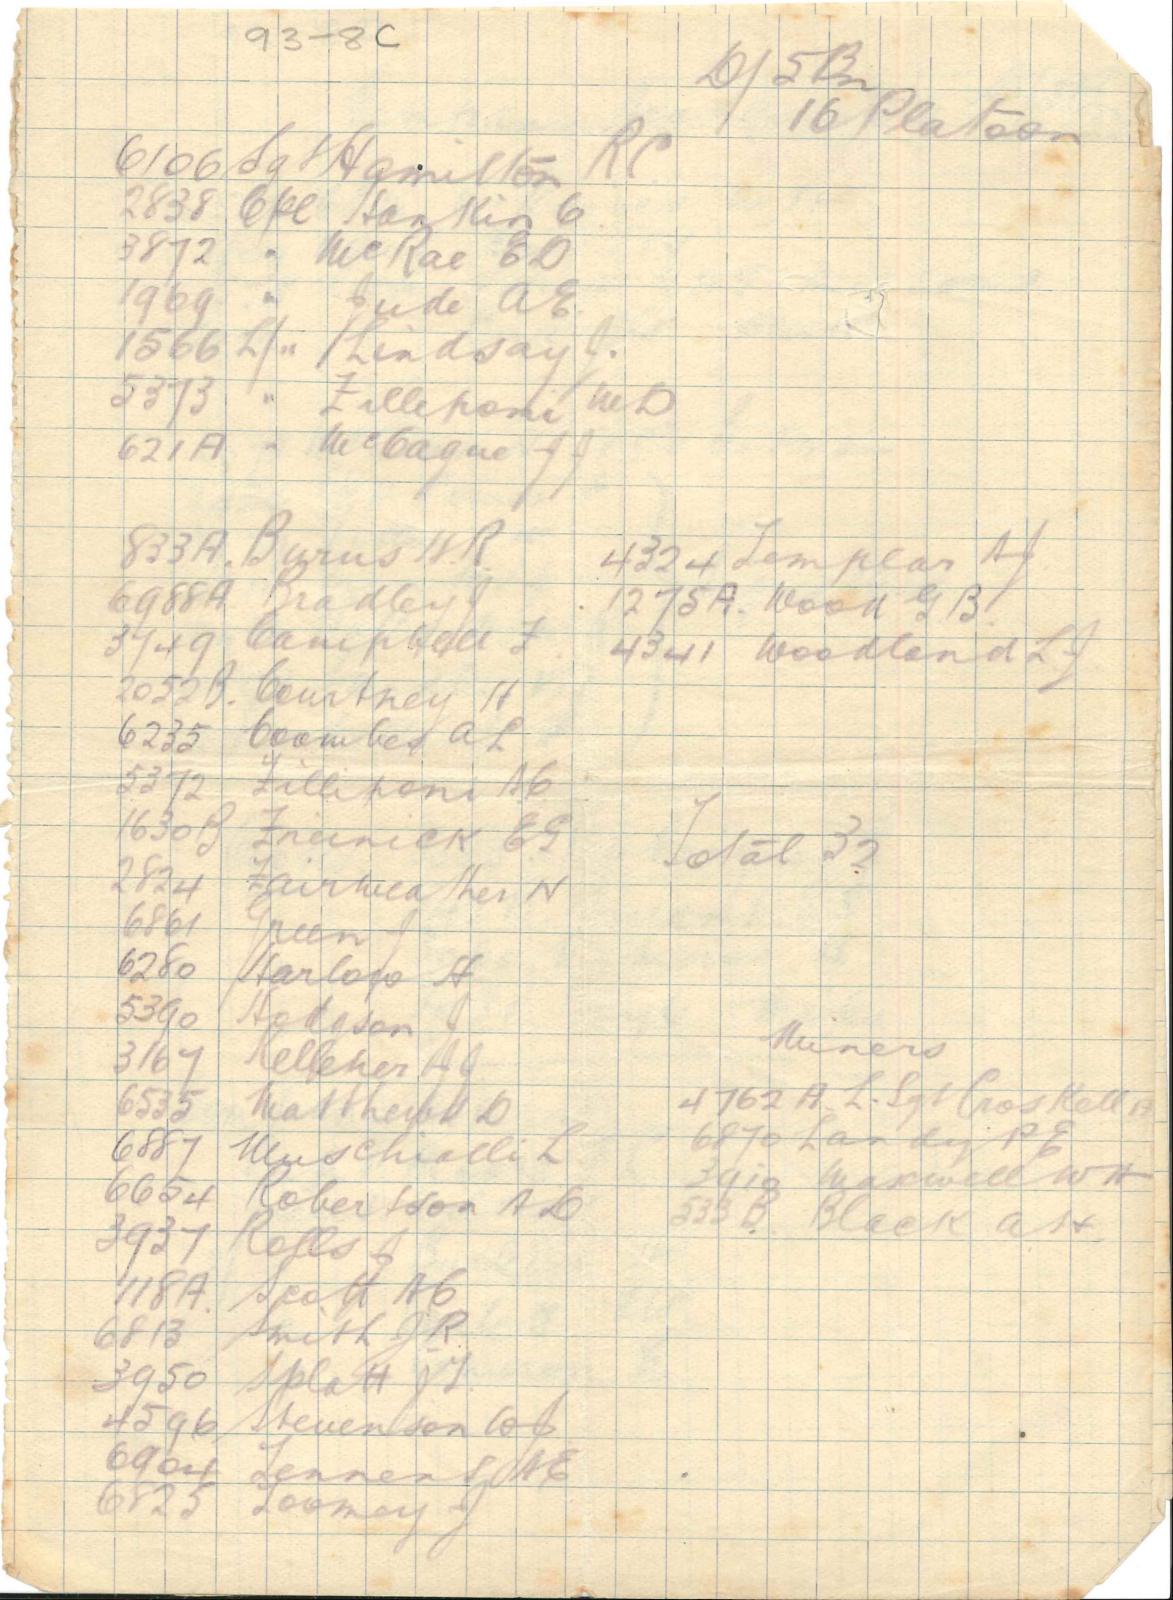 93-8C
D/ 5 Bn
16 Platoon
6106 Sgt Hamilton RC
2838 Cpl Hankin C
3872 " McRae ED
1969 " Jude AE
1566 L/" Lindsay J.
5373 " Filliponi MD
621A " McCague JJ
833A. Burns H.R.
6988A Bradley J
3749 Campbell F
2052B. Courtney H
6235 Coombes AL
5372 Fillipone AC
1630B EG
2824 Fairweather N
6861 Green J
6280 Harlow H
5390 Hodgson J
3167 Kelleher JJ
6535 Matthews D
6887 L
6654 Robertson AD
3937 Rolls J
118A. Scott AC
6813 Smith J.R.
3950 Splatt JT.
4596 Stevenson WJ
6904 Tennent AE
6825 Toomey J
4324 Templar AJ
1275A. Wood GB.
4341 Woodland LJ
Total 32
Miners
4762A. L-Sgt Croskell
6870 Landy PE
3910 Maxwell WH
533B. Black AH